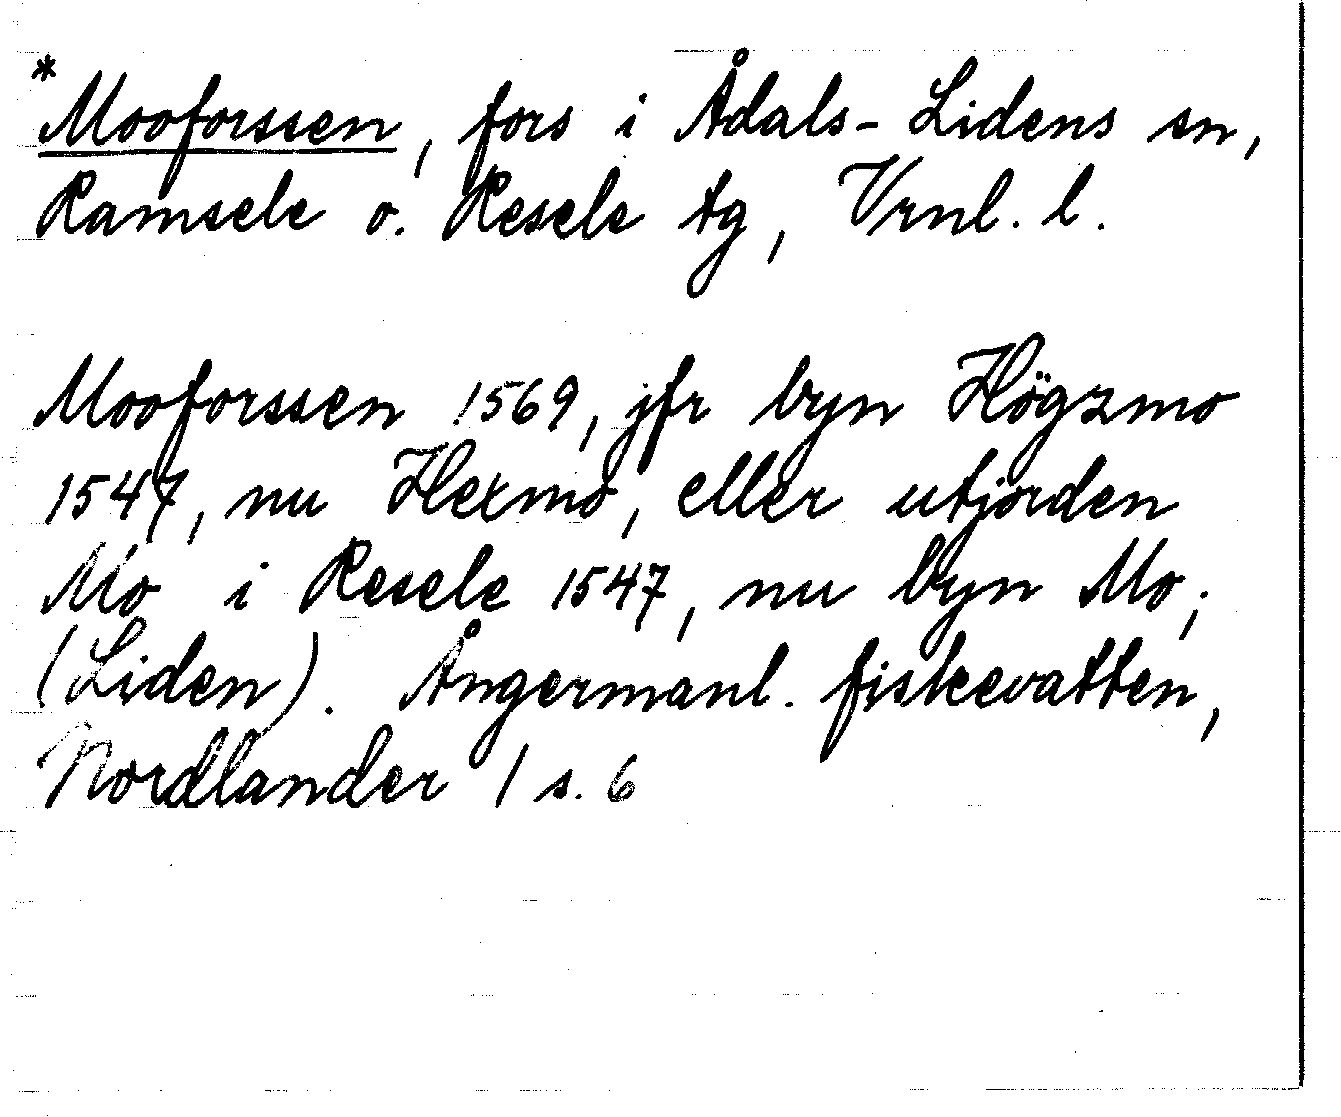 *Mooforssen, fors i Ådals-Lidens sn,
Ramsele o. Resele tg, Vrnl. l.
Mooforssen 1569, jfr byn Högzmo
1547, nu Hexmo, eller utjorden
Mo i Resele 1547, nu byn Mo;
(Liden). Ångermanl. fiskevatten,
Nordlander 1 s. 6